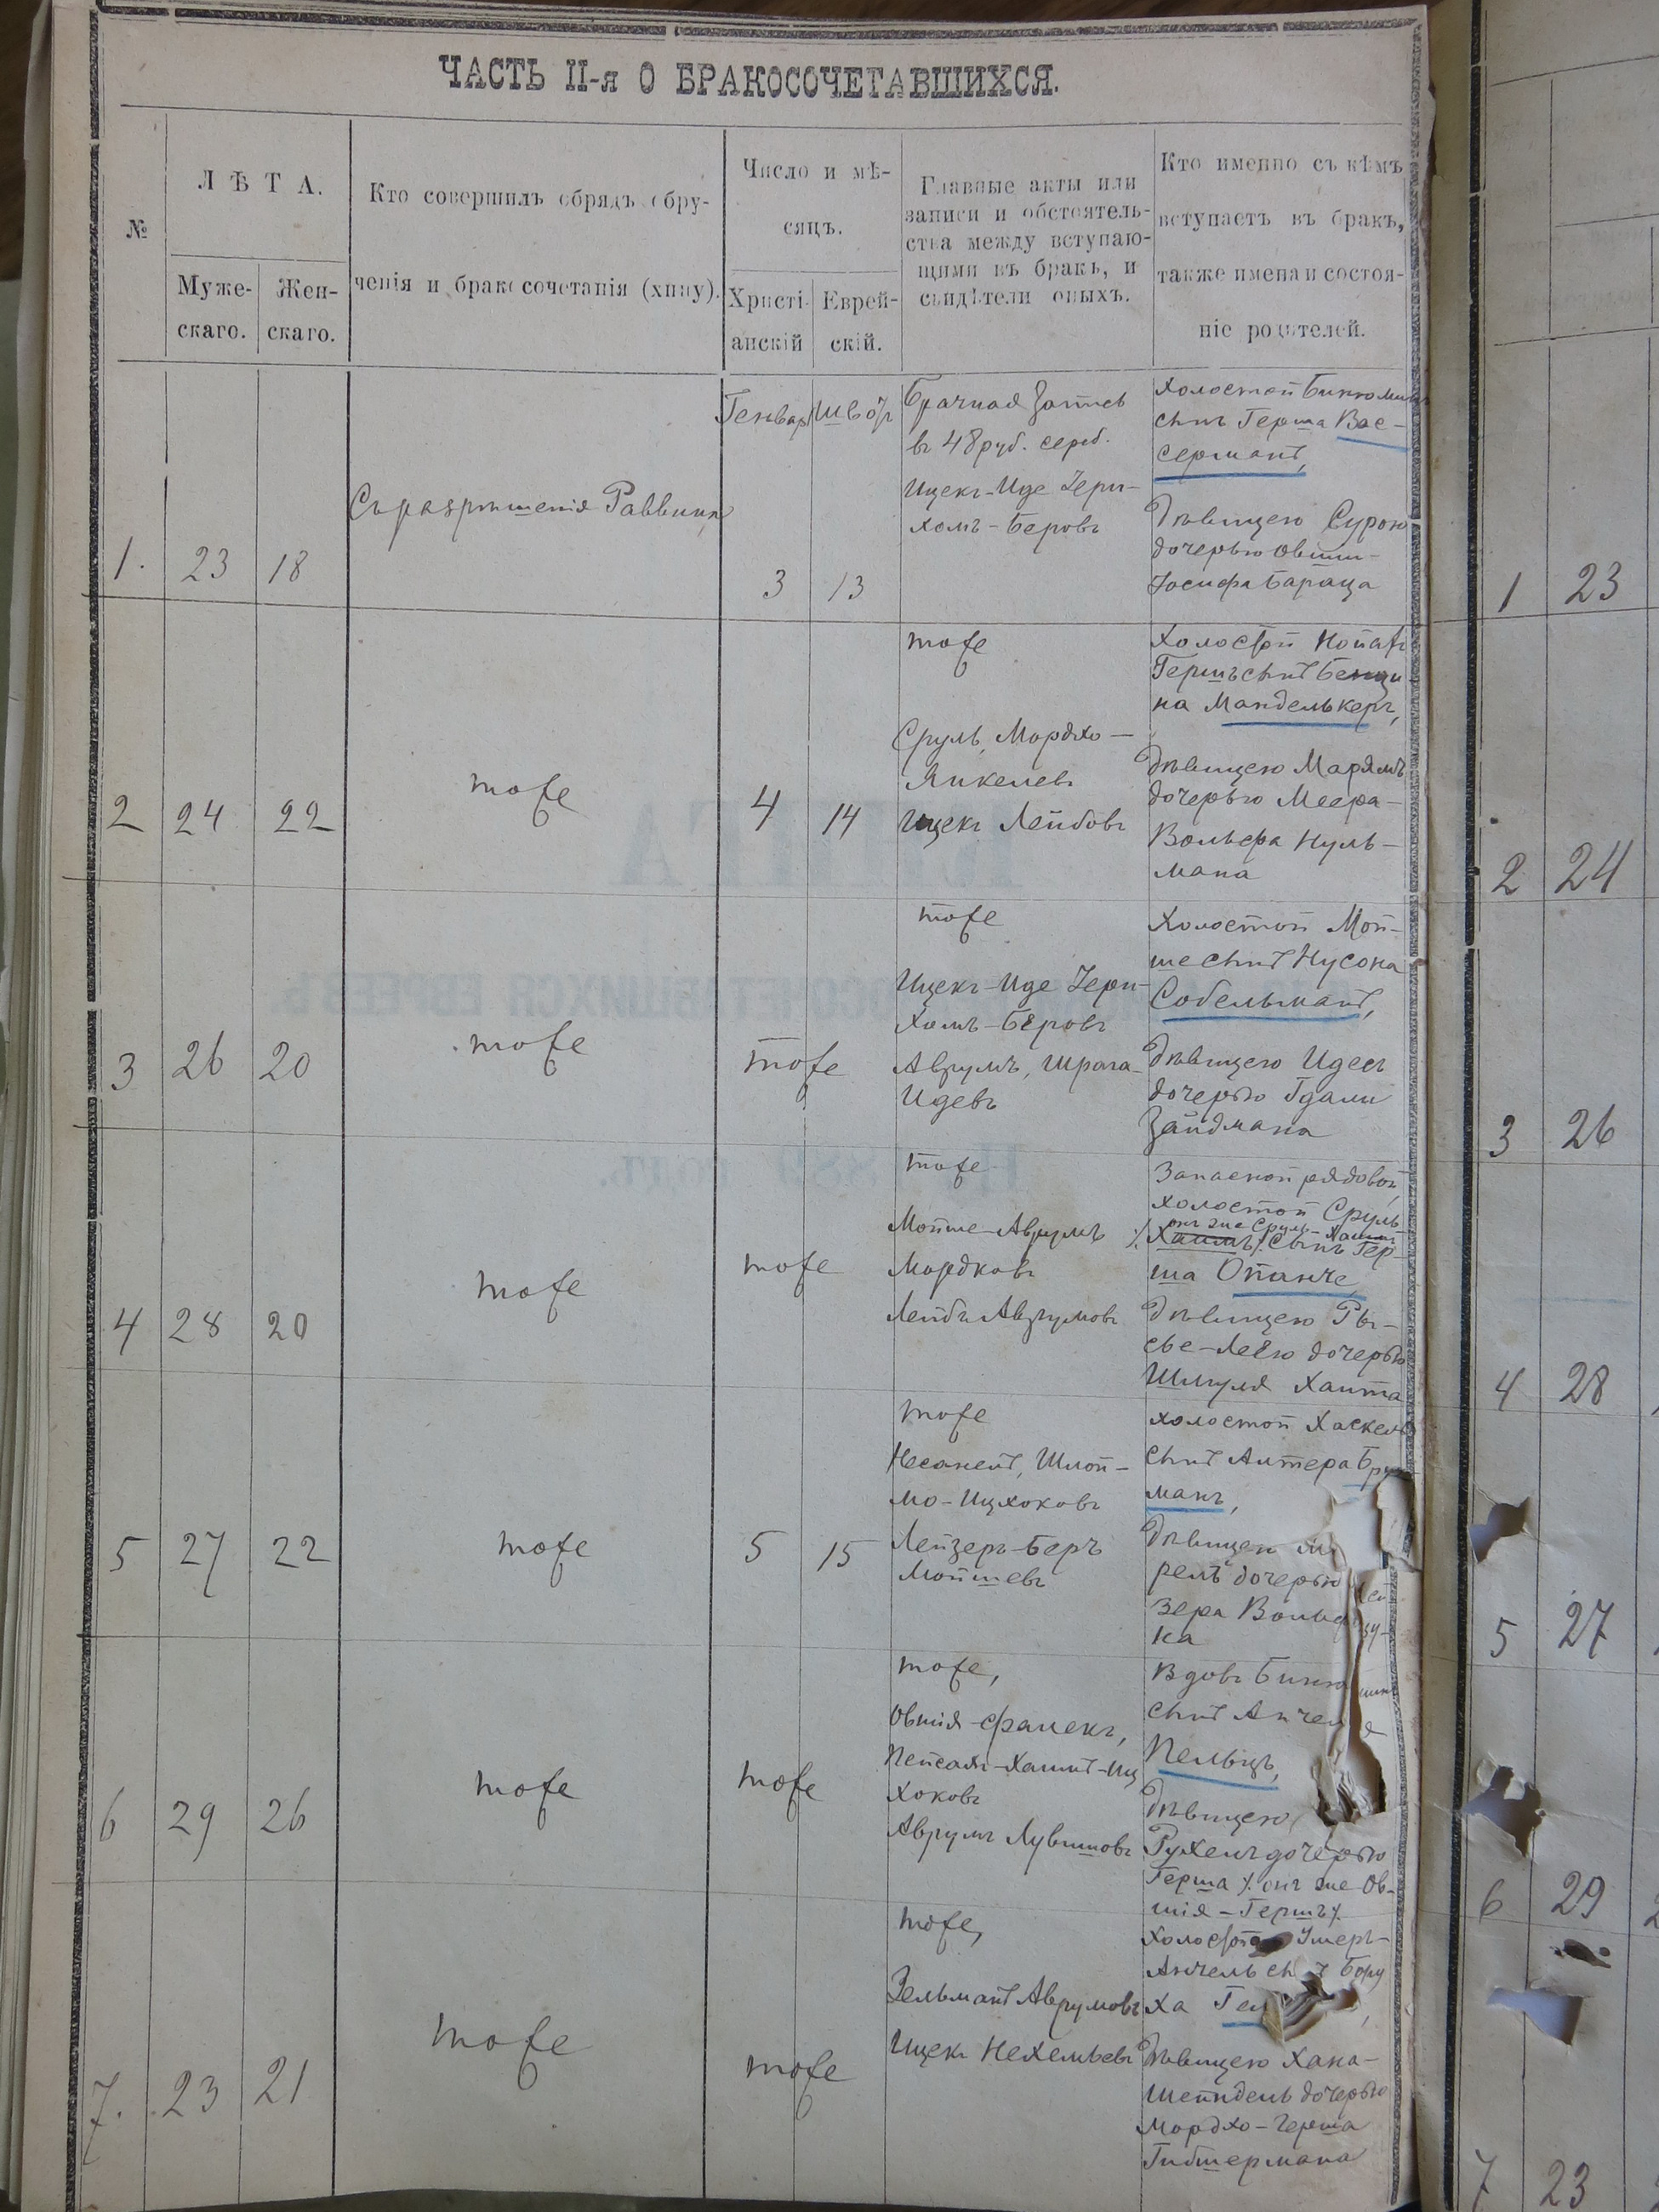 ЧАСТЬ II-я О БРАКОСОЧЕТАВШИХСЯ.
№
ЛѢТА.
Муже-
скаго.
Жен-
скаго.
Кто совершилъ обрядъ обру-
ченія и бракосочетанія (хипу).
Число и мѣ-
сяцъ.
Христі-
анскій
Еврей-
скій.
Главные акты или
записи и обстоятель-
ства между вступаю-
щими въ бракъ, и
свидѣтели оныхъ.
Кто именно съ кѣмъ
вступаетъ въ бракъ,
также имена и состоя-
ніе родителей.
1.
23
18
Съ разрѣшенія Раввина
Генварь
3
13
Брачная Запись
въ 48 руб. сереб.
Ицекъ-Иде Зери-
хомъ-Беровъ
Холостой
сынъ Герша Вас-
серманъ,
Дѣвицею Сурою
дочерью Овши-
Іосифа Бараца
2
24
22
тоже
4
14
тоже
Сруль, Мордхо-
Янкелевъ
Ицекъ Лейбовъ
Холостой
Гершъ сынъ Бенци
на Манделькеръ,
Дѣвицею Марямъ
дочерью Меера-
Вольфа Нуль-
мана
3
26
20
тоже
тоже
тоже
Ицекъ-Иде Зери-
хомъ-Беровъ
Аврумъ, Шрага-
Идевъ
Холостой Мой-
ше сынъ Нусона
Собельманъ,
Дѣвицею Идесъ
дочерью Гдали
Зайдмана
4
28
20
тоже
тоже
тоже
Мойше-Аврумъ
Мордковъ
Лейбъ Аврумовъ
Запасной рядовой,
холостой Сруль
онъ же Сруль-Хаимъ
Хаимъ сынъ Гер-
ша Опанче,
Дѣвицею Ры-
сье-Леею дочерью
Шмуля Хаита
5
27
22
тоже
5
15
тоже
Несанелъ, Шлой-
мо-Ицхоковъ
Лейзеръ-Беръ
Мойшевъ
холостой Хаскель
сынъ Алтера
манъ,
Дѣвицею
релъ дочерью
зера
ка
6
29
26
тоже
тоже
тоже,
Овшія-Фалекъ,
Пейсахъ-Хаимъ-Иц
хоковъ
Аврумъ Лувишовъ
Вдовъ
сынъ
Пельцъ,
Дѣвицею
Рухель дочерью
Герша ⁒ онъ же Ов-
шія-Гершъ ⁒
7.
23
21
тоже
тоже
тоже,
Зельманъ Аврумовъ
Ицекъ Нехемьевъ
Холостой Ушеръ-
Анчель Бору
ха
Дѣвицею Хана-
Шейндель дочерью
Мордхо-Герша
Гибшермана
1
23
2
24
3
26
4
28
5
27
6
29
7
23